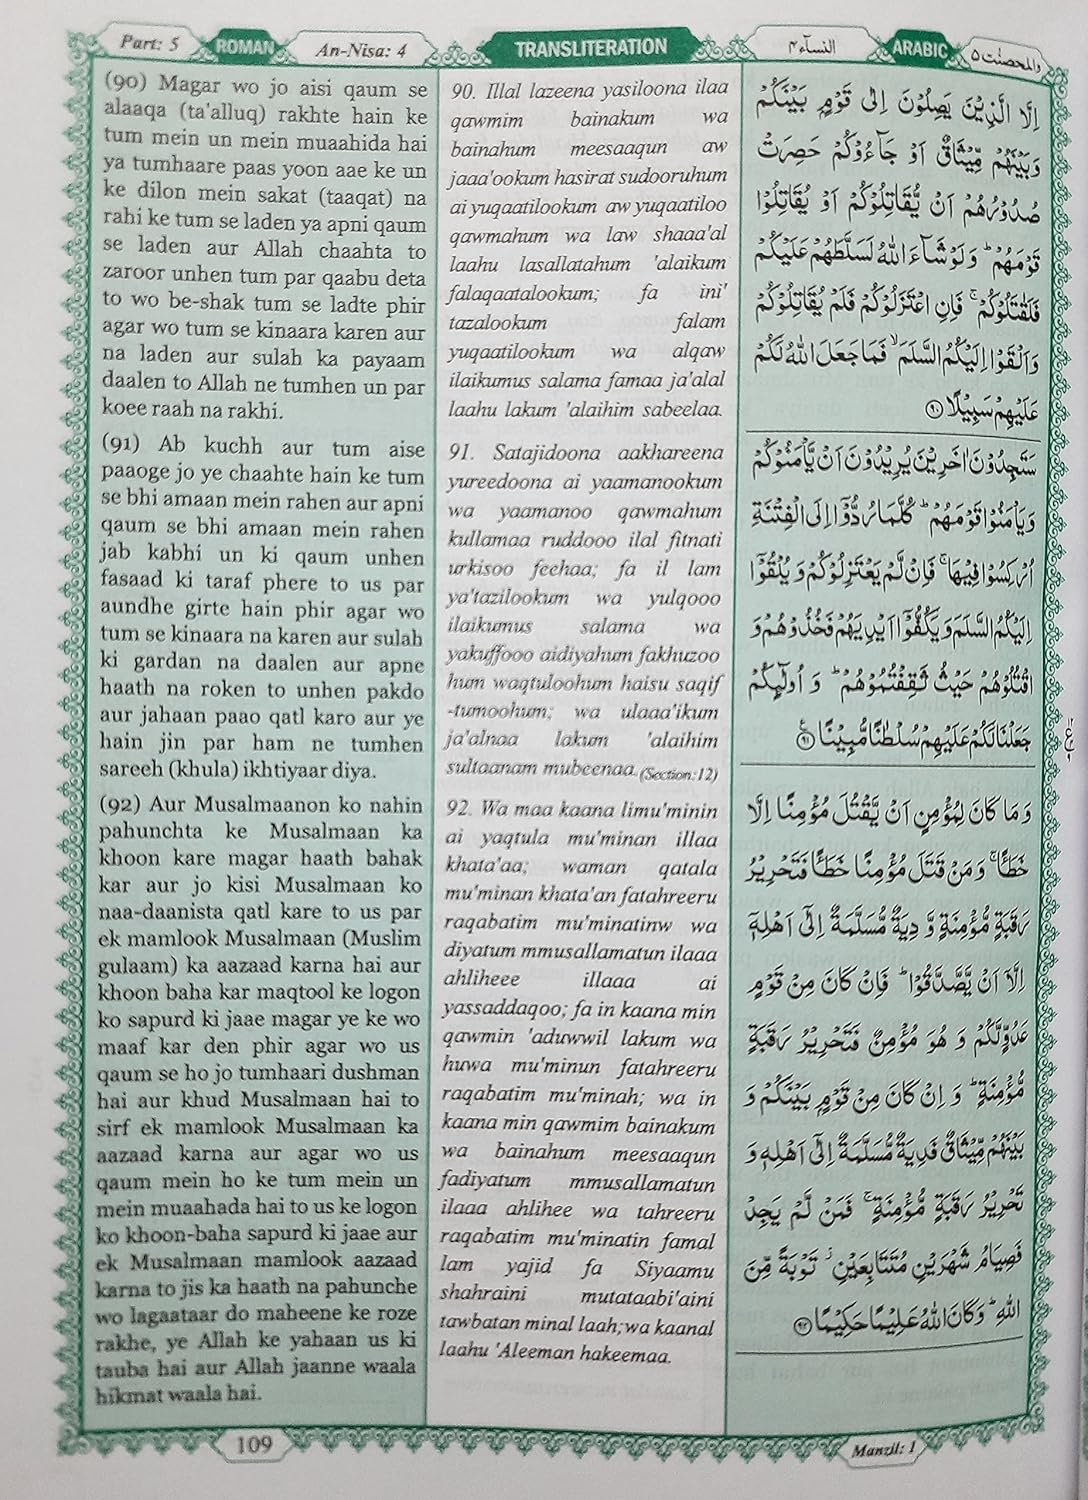 Part: 5
ROMAN
An-Nisa: 4
TRANSLITERATION
النسآء ٤
ARABIC
والمحصنٰت ٥
(90) Magar wo jo aisi qaum se
alaaqa (ta'alluq) rakhte hain ke
tum mein un mein muaahida hai
ya tumhaare paas yoon aae ke un
ke dilon mein sakat (taaqat) na
rahi ke tum se laden ya apni qaum
se laden aur Allah chaahta to
zaroor unhen tum par qaabu deta
to wo be-shak tum se ladte phir
agar wo tum se kinaara karen aur
na laden aur sulah ka payaam
daalen to Allah ne tumhen un par
koee raah na rakhi.
(91) Ab kuchh aur tum aise
paaoge jo ye chaahte hain ke tum
se bhi amaan mein rahen aur apni
qaum se bhi amaan mein rahen
jab kabhi un ki qaum unhen
fasaad ki taraf phere to us par
aundhe girte hain phir agar wo
tum se kinaara na karen aur sulah
ki gardan na daalen aur apne
haath na roken to unhen pakdo
aur jahaan paao qatl karo aur ye
hain jin par ham ne tumhen
sareeh (khula) ikhtiyaar diya.
(92) Aur Musalmaanon ko nahin
pahunchta ke Musalmaan ka
khoon kare magar haath bahak
kar aur jo kisi Musalmaan ko
naa-daanista qatl kare to us par
ek mamlook Musalmaan (Muslim
gulaam) ka aazaad karna hai aur
khoon baha kar maqtool ke logon
ko sapurd ki jaae magar ye ke wo
maaf kar den phir agar wo us
qaum se ho jo tumhaari dushman
hai aur khud Musalmaan hai to
sirf ek mamlook Musalmaan ka
aazaad karna aur agar wo us
qaum mein ho ke tum mein un
mein muaahada hai to us ke logon
ko khoon-baha sapurd ki jaae aur
ek Musalmaan mamlook aazaad
karna to jis ka haath na pahunche
wo lagaataar do maheene ke roze
rakhe, ye Allah ke yahaan us ki
tauba hai aur Allah jaanne waala
hikmat waala hai.
90. Illal lazeena yasiloona ilaa
qawmim bainakum wa
bainahum meesaaqun aw
jaaa'ookum hasirat sudooruhum
ai yuqaatilookum aw yuqaatiloo
qawmahum wa law shaaa'al
laahu lasallatahum 'alaikum
falaqaatalookum; fa ini'
tazalookum falam
yuqaatilookum wa alqaw
ilaikumus salama famaa ja'alal
laahu lakum 'alaihim sabeelaa.
91. Satajidoona aakhareena
yureedoona ai yaamanookum
wa yaamanoo qawmahum
kullamaa ruddooo ilal fitnati
urkisoo feehaa; fa il lam
ya'tazilookum wa yulqooo
ilaikumus salama wa
yakuffooo aidiyahum fakhuzoo
hum waqtuloohum haisu saqif
-tumoohum; wa ulaaa'ikum
ja'alnaa lakum 'alaihim
sultaanam mubeenaa. (Section:12)
92. Wa maa kaana limu'minin
ai yaqtula mu'minan illaa
khata'aa; waman qatala
mu'minan khata'an fatahreeru
raqabatim mu'minatinw wa
diyatum mmusallamatun ilaaa
ahliheee illaaa ai
yassaddaqoo; fa in kaana min
qawmin 'aduwwil lakum wa
huwa mu'minun fatahreeru
raqabatim mu'minah; wa in
kaana min qawmim bainakum
wa bainahum meesaaqun
fadiyatum mmusallamatun
ilaaa ahlihee wa tahreeru
raqabatim mu'minatin famal
lam yajid fa Siyaamu
shahraini mutataabi'aini
tawbatan minal laah;wa kaanal
laahu 'Aleeman hakeemaa.
اِلَّا الَّذِيْنَ يَصِلُوْنَ اِلٰى قَوْمٍۭ بَيْنَكُمْ
وَبَيْنَهُمْ مِّيْثَاقٌ اَوْ جَآءُوْكُمْ حَصِرَتْ
صُدُوْرُهُمْ اَنْ يُّقَاتِلُوْكُمْ اَوْ يُقَاتِلُوْا
قَوْمَهُمْ ؕ وَلَوْ شَآءَ اللّٰهُ لَسَلَّطَهُمْ عَلَيْكُمْ
فَلَقٰتَلُوْكُمْ ۚ فَاِنِ اعْتَزَلُوْكُمْ فَلَمْ يُقَاتِلُوْكُمْ
وَاَلْقَوْا اِلَيْكُمُ السَّلَمَ ۙ فَمَا جَعَلَ اللّٰهُ لَكُمْ
عَلَيْهِمْ سَبِيْلًا ۹۰
سَتَجِدُوْنَ اٰخَرِيْنَ يُرِيْدُوْنَ اَنْ يَّاْمَنُوْكُمْ
وَيَاْمَنُوْا قَوْمَهُمْ ؕ كُلَّمَا رُدُّوْۤا اِلَى الْفِتْنَةِ
اُرْكِسُوْا فِيْهَا ۚ فَاِنْ لَّمْ يَعْتَزِلُوْكُمْ وَ يُلْقُوْۤا
اِلَيْكُمُ السَّلَمَ وَ يَكُفُّوْۤا اَيْدِيَهُمْ فَخُذُوْهُمْ وَ
اقْتُلُوْهُمْ حَيْثُ ثَقِفْتُمُوْهُمْ ؕ وَ اُولٰٓىِٕكُمْ
جَعَلْنَا لَكُمْ عَلَيْهِمْ سُلْطٰنًا مُّبِيْنًا ۹۱
وَ مَا كَانَ لِمُؤْمِنٍ اَنْ يَّقْتُلَ مُؤْمِنًا اِلَّا
خَطَـًٔا ۚ وَ مَنْ قَتَلَ مُؤْمِنًا خَطَـًٔا فَتَحْرِيْرُ
رَقَبَةٍ مُّؤْمِنَةٍ وَّ دِيَةٌ مُّسَلَّمَةٌ اِلٰۤى اَهْلِهٖۤ
اِلَّاۤ اَنْ يَّصَّدَّقُوْا ؕ فَاِنْ كَانَ مِنْ قَوْمٍ
عَدُوٍّ لَّكُمْ وَ هُوَ مُؤْمِنٌ فَتَحْرِيْرُ رَقَبَةٍ
مُّؤْمِنَةٍ ؕ وَ اِنْ كَانَ مِنْ قَوْمٍۭ بَيْنَكُمْ وَ
بَيْنَهُمْ مِّيْثَاقٌ فَدِيَةٌ مُّسَلَّمَةٌ اِلٰۤى اَهْلِهٖ وَ
تَحْرِيْرُ رَقَبَةٍ مُّؤْمِنَةٍ ۚ فَمَنْ لَّمْ يَجِدْ
فَصِيَامُ شَهْرَيْنِ مُتَتَابِعَيْنِ ؗ تَوْبَةً مِّنَ
اللّٰهِ ؕ وَ كَانَ اللّٰهُ عَلِيْمًا حَكِيْمًا ۹۲
109
Manzil: 1